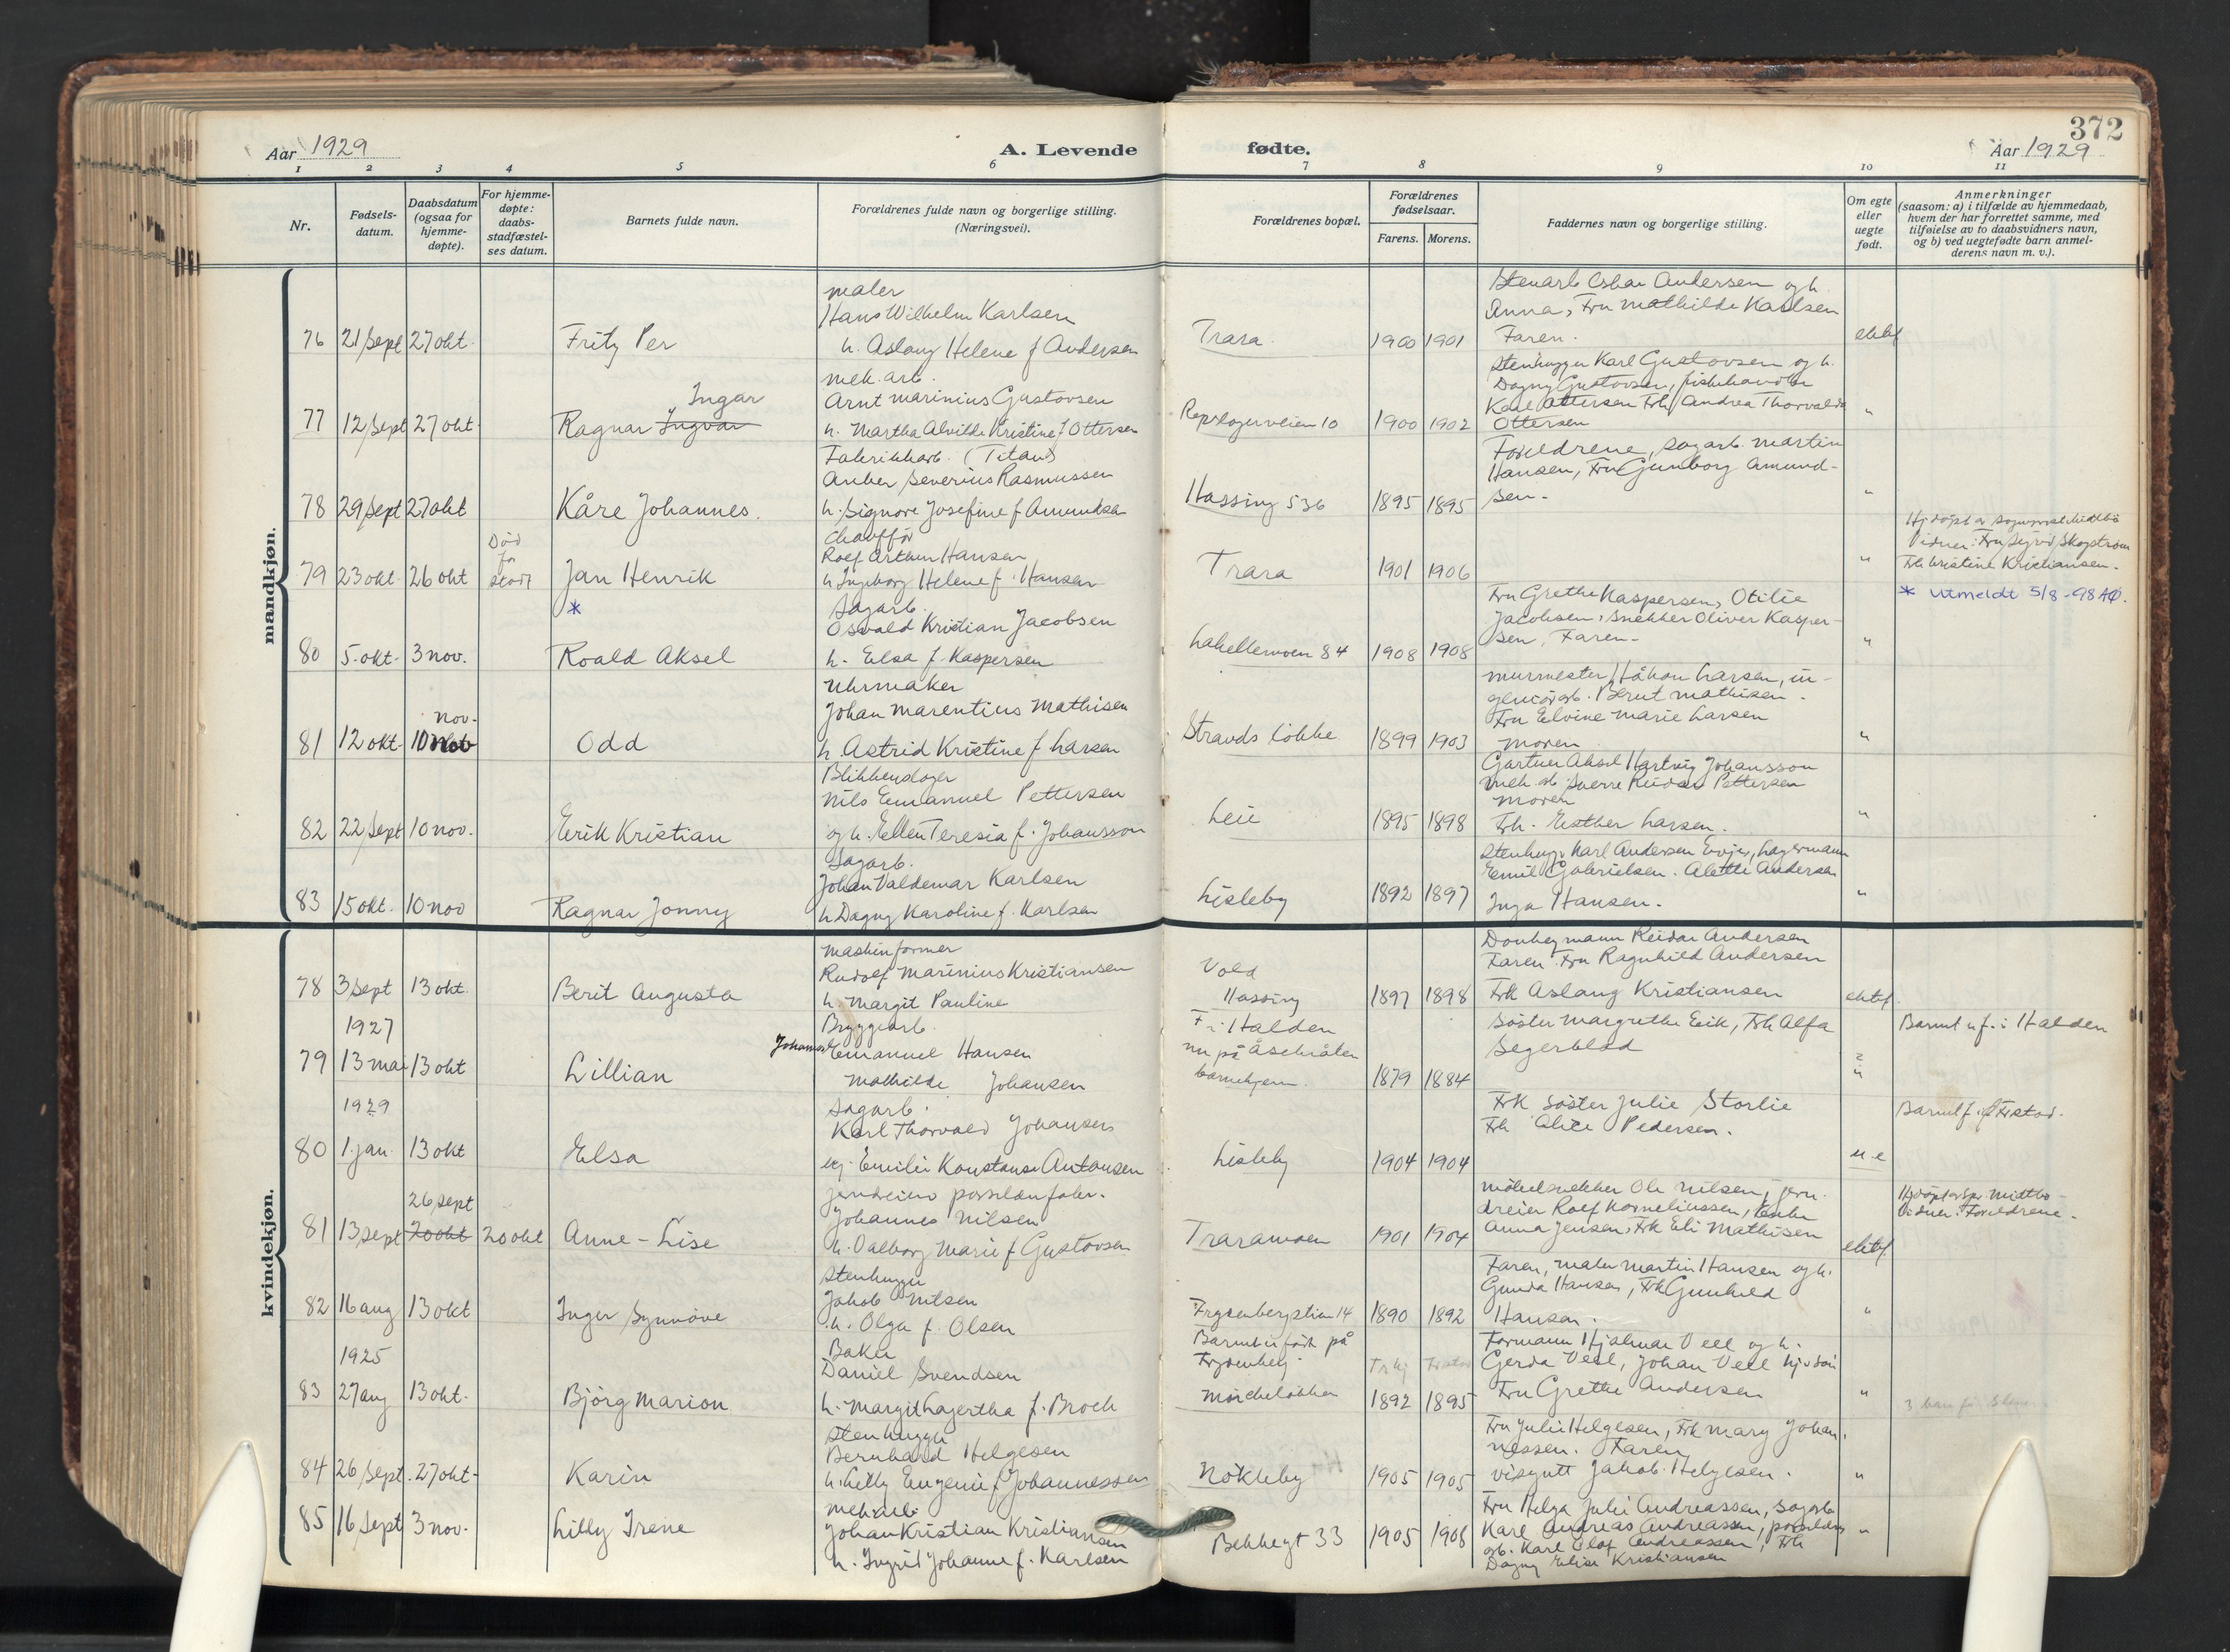 372
Aar 1929
A. Levende
fødte.
Aar 1929
1 2 3 4 5 6 7 8 9 10 11
Nr.
Fødsels-
datum.
Daabsdatum
(ogsaa for
hjemme-
døpte).
For hjemme-
døpte:
daabs-
stadfæstel-
ses datum.
Barnets fulde navn.
Forældrenes fulde navn og borgerlige stilling.
(Næringsvei).
Forældrenes bopæl.
Forældrenes
fødselsaar.
Farens. Morens.
Faddernes navn og borgerlige stilling.
Om egte
eller
uegte
født.
Anmerkninger
(saasom: a) i tilfælde av hjemmedaab,
hvem der har forrettet samme, med
tilføielse av to daabsvidners navn,
og b) ved uegtefødte barn anmel-
derens navn m. v.).
mandkjøn.
maler
Hans Wilhelm Karlsen
76 21/sept 27 okt. Fritz Per
h. Aslaug Helene f Andersen
Trara 1900 1901
Andersen og h.
Anna, Fru Mathilde Karlsen
Faren.
ektef
mek. arb.
Arnt Marinius Gustavsen
77 12/sept 27 okt. Ragnar Ingvar
Ingar
h. Martha Alvilde Kristine f Ottersen
Repslagerveien 10 1900 1902
Stenhugger Karl Gustavsen og h.
Dagny Gustavsen, fiskehandler
Karl Ottersen Frk Andrea Thorvalda
Ottersen
"
Fabrikkarb. (Titan)
Anker Severius Rasmussen
78 29 sept 27 okt Kåre Johannes.
h. Signora Josefine f Amundsen
Hassing 536 1895 1895
Foreldrene, sagarb. Martin
Hansen, Fru Gunborg Amund-
sen.
"
chauffør
Rolf Arthur Hansen
79 23 okt. 26 okt
Død
før
stadf
Jan Henrik
h Ingborg Helene f. Hansen
Trara 1901 1906
"
Vidner: Fru Sigrid Skogstrøm
Frk Kristine Kristiansen.
* utmeldt 5/8-98 AØ.
*
Sagarb.
Osvald Kristian Jacobsen
80 5. okt. 3 nov. Roald Aksel
h. Elsa f. Kaspersen
Lakellermoen 84 1908 1908
Fru Grethe Kaspersen, Otilie
Jacobsen, snekker Oliver Kasper-
sen, Faren.
"
Uhrmaker
Johan Marentius Mathisen
81 12 okt. 10 nov. Odd
h Astrid Kristine f Larsen
Strands løkke 1899 1903
murmester Håkon Larsen, in-
geniørarb. Bernt Mathisen.
Fru Elvine Marie Larsen
Moren
"
Blikkenslager
Nils Emanuel Pettersen
82 22/sept 10 nov. Erik Kristian
og h. Ellen Teresia f. Johansson
Leie 1895 1898
Gartner Aksel Hartvig Johansson
mek arb. Sverre Reidar Pettersen
Moren
Frk. Esther Larsen.
"
Sagarb.
Johan Valdemar Karlsen
83 15 okt. 10 nov Ragnar Jonny
h Dagny Karoline f. Karlsen
Lisleby 1892 1897
Stenhugg. Karl Andersen Evje, lagermann
Emil Gabrielsen. Alette Andersen
Inga Hansen.
"
kvindekjøn.
maskinformer
Rudolf Marinius Kristiansen
78 3 sept 13 okt. Berit Augusta
h. Margit Pauline
Vold
Hassing
1897 1898
Donkeymann Reidar Andersen
Faren. Fru Ragnhild Andersen
Frk Aslaug Kristiansen
ektef.
1927
Bryggearb.
Johannes Emanuel Hansen
79 13 mai 13 okt Lillian
Mathilde Johansen
F. i Halden
nu på Åsebråten
barnehjem.
1879 1884
Søster Margrethe Eeik, Frk Alfa
Segerblad
"
Barnet er f. i Halden
1929
Sagarb.
Karl Thorvald Johansen
80 1. jan. 13 okt Elsa
og Emilie Konstanse Antonsen
Lisleby 1904 1904
Frk søster Julie Storlie
Frk Alice Pedersen.
u.e
Barnet f. i Frstad.
jerndreier
Johannes Nilsen
26 sept
81 13 sept 20 okt 20 okt Anne-Lise
h. Valborg Marie f Gustavsen
Traramoen 1901 1904
møbelsnekker Ole Nilsen, jern-
dreier Rolf Korneliussen,
Anna Jensen, Frk Eli Mathisen
ektef.
Vidner: Foreldrene.
Stenhugger
Jakob Nilsen
82 16 aug 13 okt Inger Synnøve
h. Olga f. Olsen
Frydenbergstien 14 1890 1892
Faren, maler Martin Hansen og h.
Gunda Hansen, Frk Gunhild
Hansen.
"
1925
Baker
Daniel Svendsen
83 27 aug 13 okt. Bjørg Marion
h. Margit Lagertha f. Broch
Barnet er født på
Frydenberg.
1892 1895
Formann Hjalmar Veel og h.
Gerda Veel, Johan Veel
Fru Grethe Andersen
"
Stenhugger
Bernhard Helgesen
84 26 sept. 27 okt. Karin
h. Lilly Eugenie f Johannessen
Nøkleby 1905 1905
Fru Julie Helgesen, Frk Mary Johan-
nessen. Faren
visergutt Jakob Helgesen.
"
Mek arb.
Johan Kristian Kristiansen
85 16 sept 3 nov. Lilly Irene
h. Ingrid Johanne f. Karlsen
Bekkegt 33 1905 1908
Fru Helga Julie Andreassen, Sagarb
Karl Andreas Andreassen,
arb. Karl Olaf Andreassen, Frk
Dagny Elise Kristiansen
"